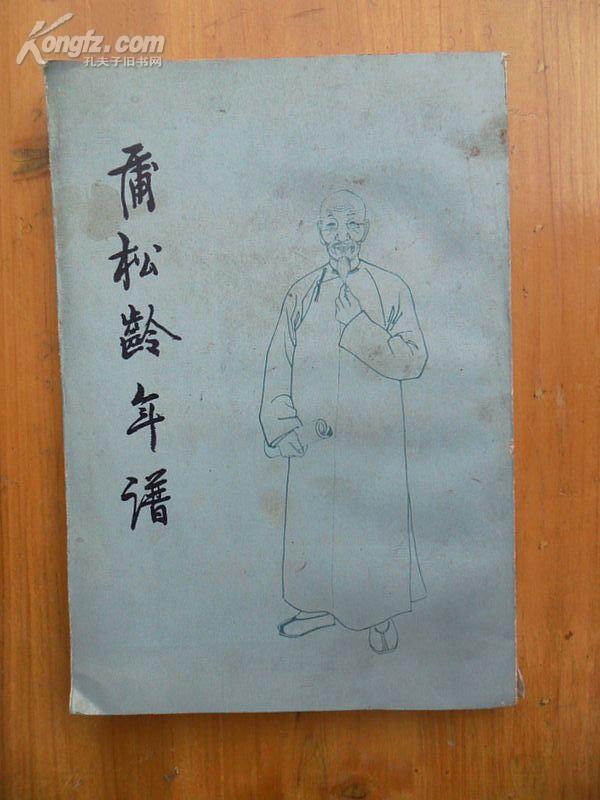 Kongfz.com
孔夫子旧书网
蒲松龄年谱